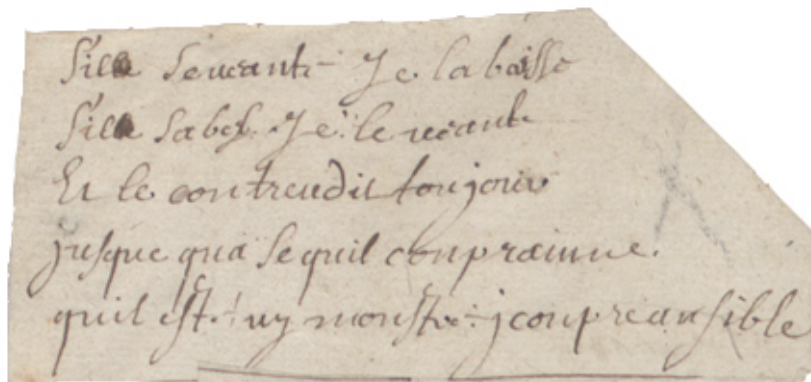 s'il se uante Je labaisse
s'il sabes Je le uante
Et le contrendit toujour
jusque qua se quil conprainne.
quil est uy monstre jconpreansible